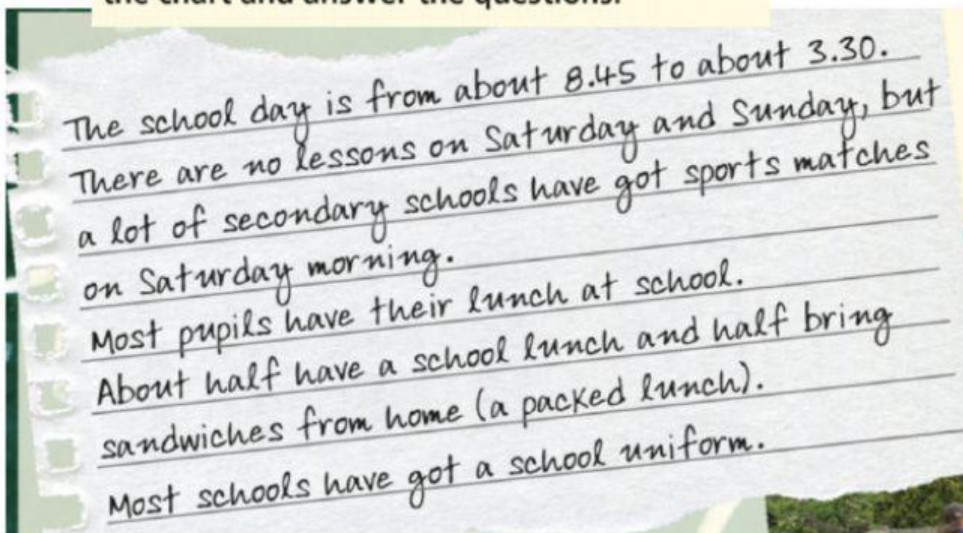 the chart and answer the questions.
The school day is from about 8.45 to about 3.30.
There are no lessons on Saturday and Sunday, but
a lot of secondary schools have got sports matches
on Saturday morning.
Most pupils have their lunch at school.
About half have a school lunch and half bring
sandwiches from home (a packed lunch).
Most schools have got a school uniform.